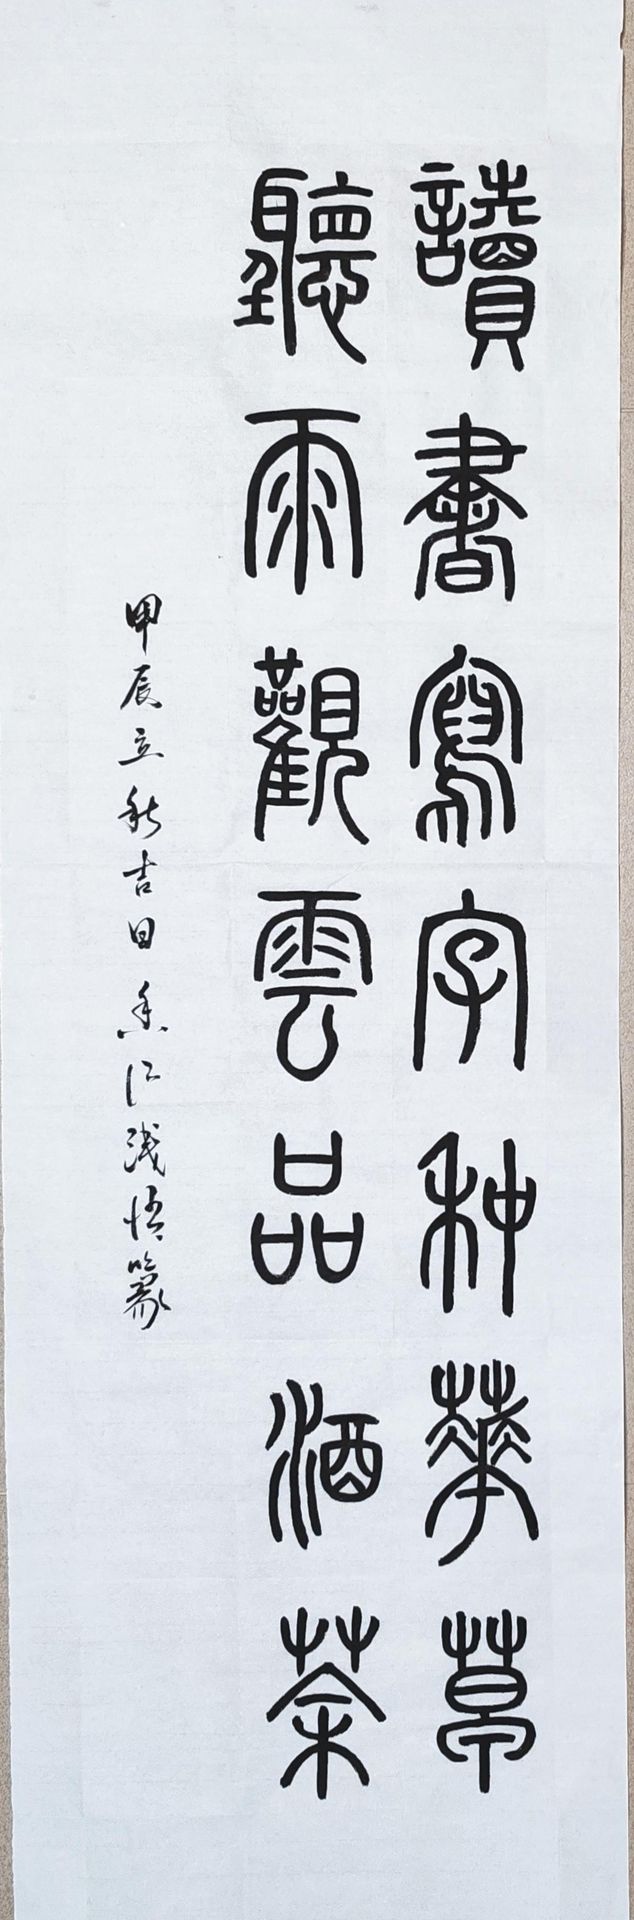 讀書寫字种華草
聽雨觀雲品酒茶
甲辰立秋吉日香江淺悟篆